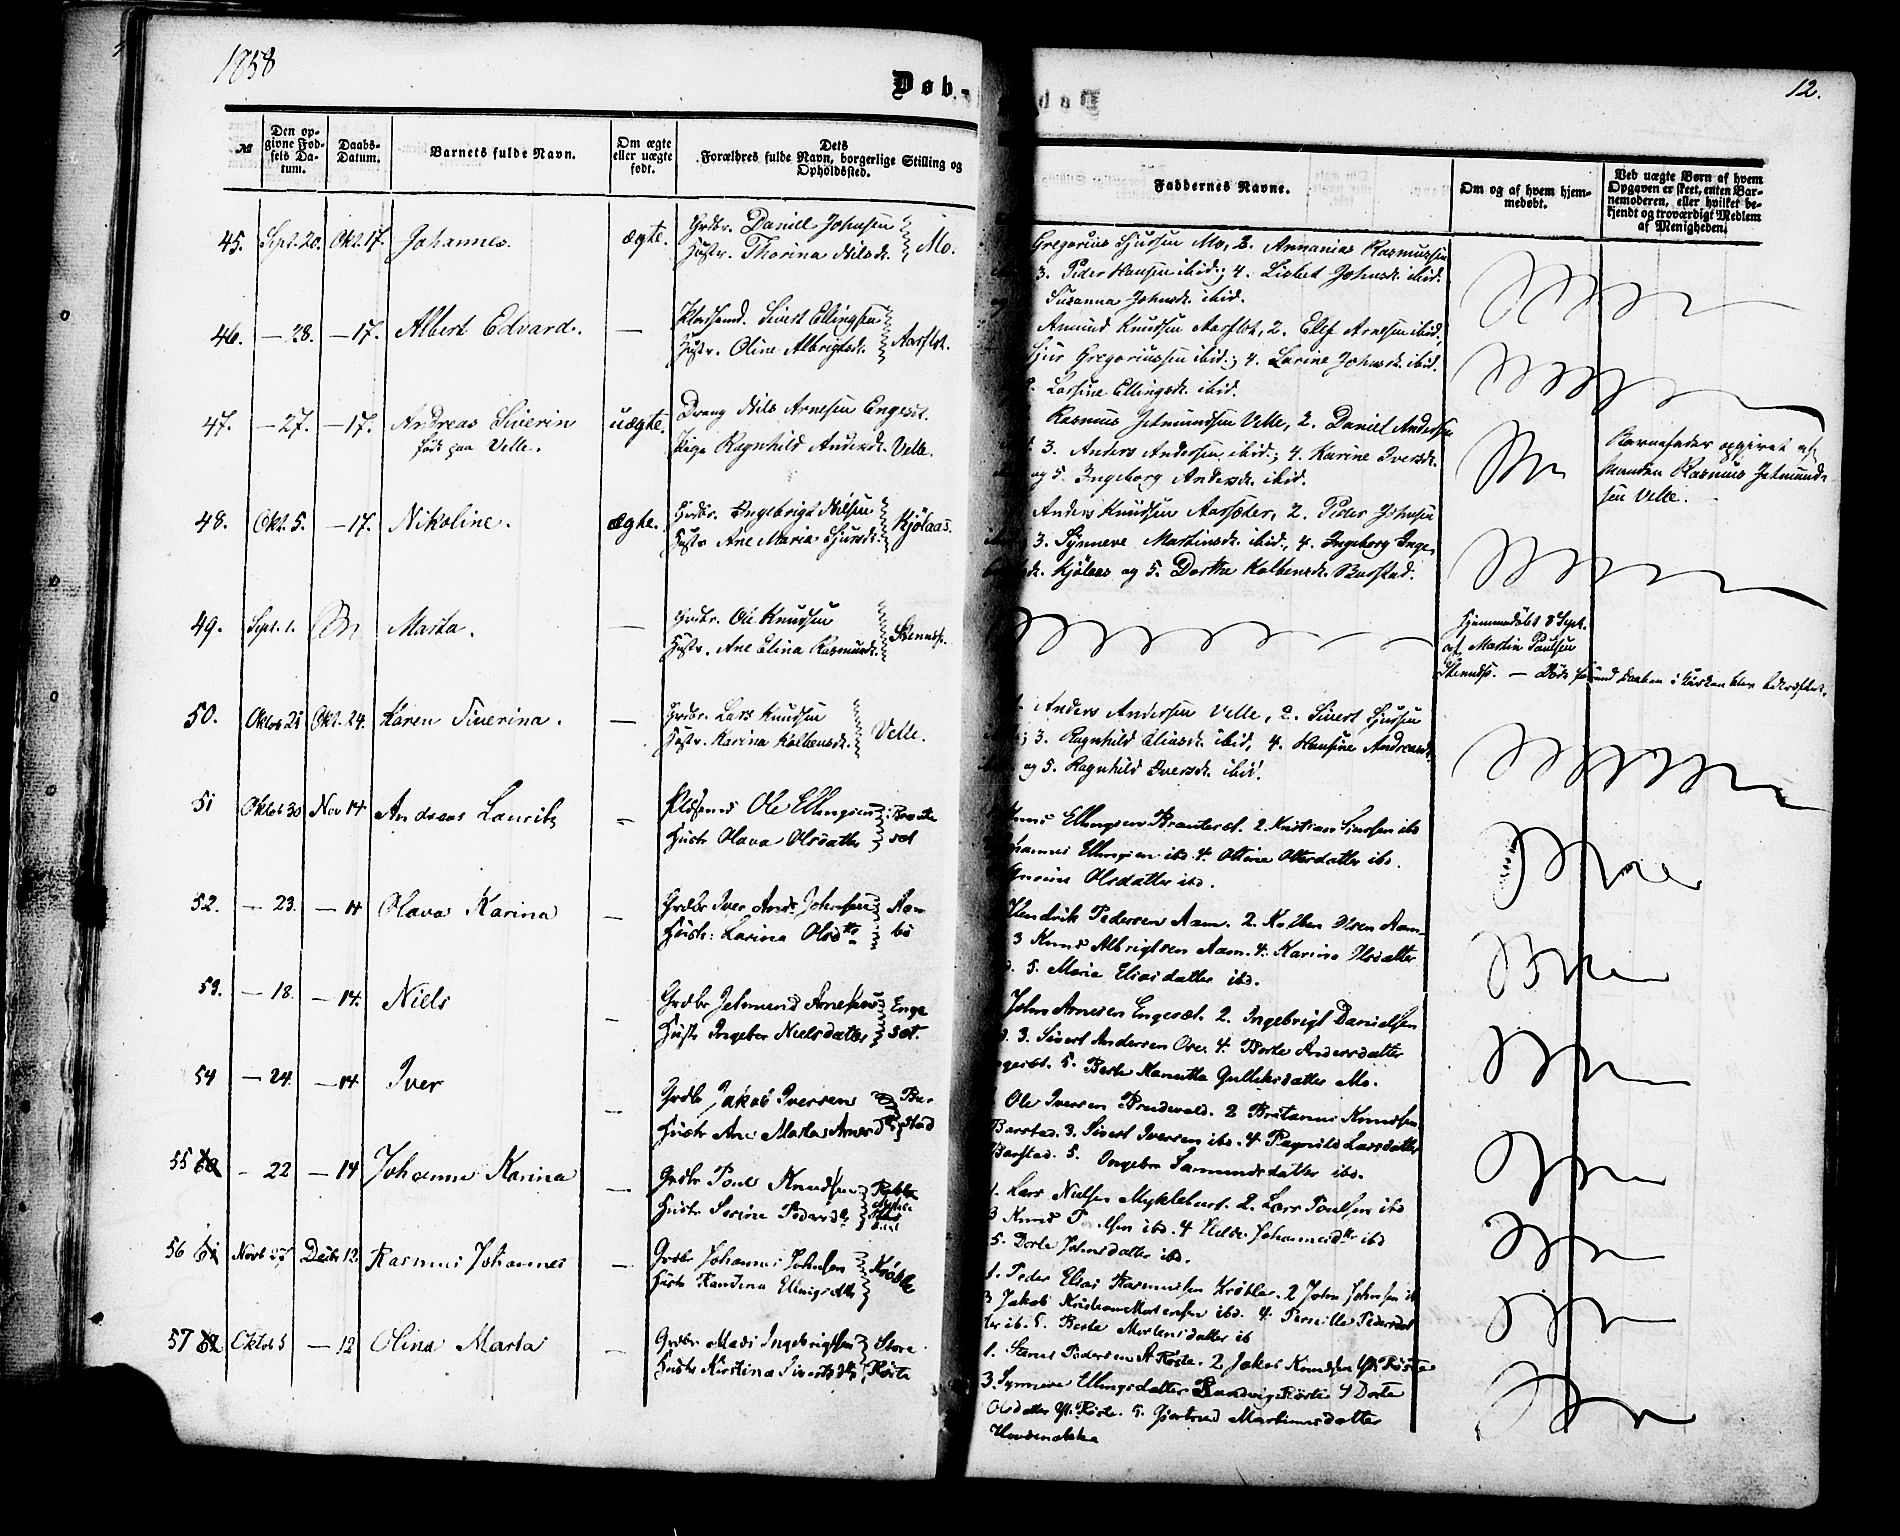 1858
Døb-
12.
№
Den op-
givne Fød-
sels Da-
tum.
Daabs-
Datum.
Barnets fulde Navn.
Om ægte
eller uægte
født.
Dets
Forældres fulde Navn, borgerlige Stilling og
Opholdssted.
Faddernes Navne.
Om og af hvem hjem-
medøbt.
Ved uægte Børn af hvem
Opgaven er skeet, enten Bar-
nemoderen, eller hvilket be-
kjendt og troværdigt Medlem
af Menigheden.
45. Sept. 20. Okt. 17. Johannes. ægte. Grdbr. Daniel Johnsen
Hustr. Thorina Nilsd. Mo.
Gregorius Sjursen Mo, 2. Annanias Rasmussen
3. Peder Hansen ibid; 4. Lisbet Johnsd. ibid.
Susanna Johnsd. ibid.
46. — 28. — 17. Albert Edvard. — Pladsemd. Sivert Ellingsen
Hustr. Oline Albrigtsd. Aarflot.
Amund Knudsen Aarflot, 2. Elef Arnesen ibid,
Sjur Gregoriussen ibid; 4. Larine Johnsd. ibid.
Larsine Ellingsd. ibid.
47. — 27. — 17. Andreas Siverin
født paa Velle.
uægte. Dreng Nils Arnesen Engeset.
Pige Ragnhild Andersd. Velle.
Rasmus Jetmundsen Velle, 2. Daniel Andersen
3. Anders Andersen ibid; 4. Karine Iversd.
og 5. Ingeborg Andersd. ibid.
Barnefader opgivet af
Manden Rasmus Jetmund-
sen Velle.
48. Okt. 5. — 17. Nikoline. ægte. Grdbr. Ingebrigt Nilsen
Hustr. Ane Maria Sjursd. Kjølaas.
Anders Knudsen Aarsæter, 2. Peder Johnsen
3. Synneve Martinsd. ibid, 4. Ingeborg Inge-
Kjølaas og 5. Dorthe Kolbensd. Barstad.
49. Sept. 1. Marta. — Grdbr. Ole Knudsen
Hustr. Ane Elina Rasmusd.
Hjemmedøbt 8 Sept.
af Martin Paulsen
50. Oktob 21 Okt. 24. Karen Siverina. — Grdbr. Lars Knudsen
Hustr. Karina Kolbensd. Velle.
Anders Andersen Velle, 2. Sivert Sjursen
3. Ragnhild Eliasd. ibid, 4. Hansine Andreasd.
og 5. Ragnhild Iversd. ibid.
51 Oktob 30 Nov 14 Andreas Laurits — Pldsmd Ole Ellingsen
Hustr Olava Olsdatter Braute
set
Ellingsen Brauteset. 2. Kristian Sjursen ibd
Johannes Ellingsen ibd. 4. Olline Olsdatter ibd.
Olsdatter ibd.
52. — 23. — 14 Olava Karina — Grdbr Iver And. Johnsen
Hustr: Larina Olsdtr Aam
bø
Hendrik Pedersen Aam. 2. Kolben Olsen Aam
3 Knud Albrigtsen Aam. 4. Karine Olsdatter
5. Marie Eliasdatter ibd.
53. — 18. — 14. Niels — Grdbr Jetmund Arnesen
Hustr Ingebor Nielsdatter Enge
set.
John Arnesen Engeset. 2. Ingebrigt Danielsen
3. Sivert Andersen Ose. 4. Berte Andersdatter
5. Berte Gulleksdatter Mo.
54 — 24. — 14 Iver — Grdbr Jakob Iversen
Hustr Ane Marta Arnesd Bar-
stad
Ole Iversen Brudevold. 2 Knudsen
Barstad. 3. Sivert Iversen ibd. 4. Ragnild Larsdatter
Barstad. 5. Ingebor Samundsdatter ibd.
55 — 22 — 14 Johanne Karina — Grdbr Poul Knudsen
Hustr Serine Pedersdtr
1. Lars Nielsen Myklebust. 2. Lars Poulsen ibd
3 Knud ibd. 4 Johannesdtr ibd
5. Dorte Johnsdatter ibd.
56 Novb 27 Decbr 12 Rasmus Johannes — Grdbr Johannes Johnsen
Hustr Ellingsdtr Krøble
1. Peder Elias Rasmussen Krøble. 2 John Johnsen ib
3 Jakob Kristian Mortensen ibd. 4. Pernille Pedersdat
ter ib. 5. Berte Mortensdatter ib
57 Oktob 5 — 12 Olina Marta — Grdbr Mads Ingebrigtsen
Hustr Kirstina Sivertsdtr Store
Røste
1. Pedersen St Røste. 2 Jakob Knudsen Yt Røste
3. Synneve Ellingsdatter Røste 4 Dorte
Olsdatter Yt. Røste. 5. Gjertrud Martinusdatter
Hovdenakke